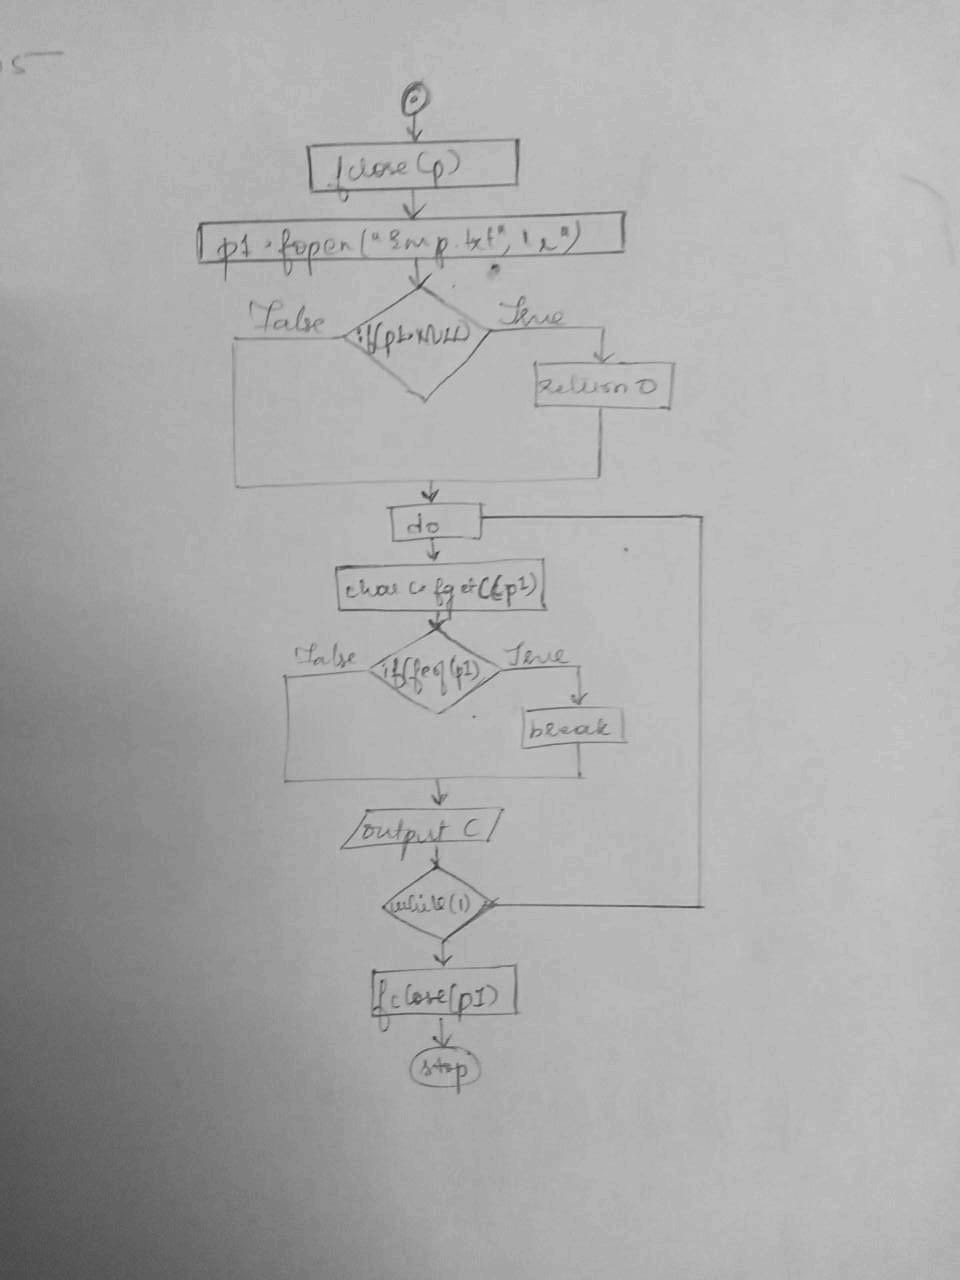 05
fclose(p)
p1 = fopen("Emp.txt", "r")
False
True
if(p1==NULL)
return 0
do
char c= fgetc(p1)
False
True
if(feof(p1)
break
output C
while(1)
fclose(p1)
stop